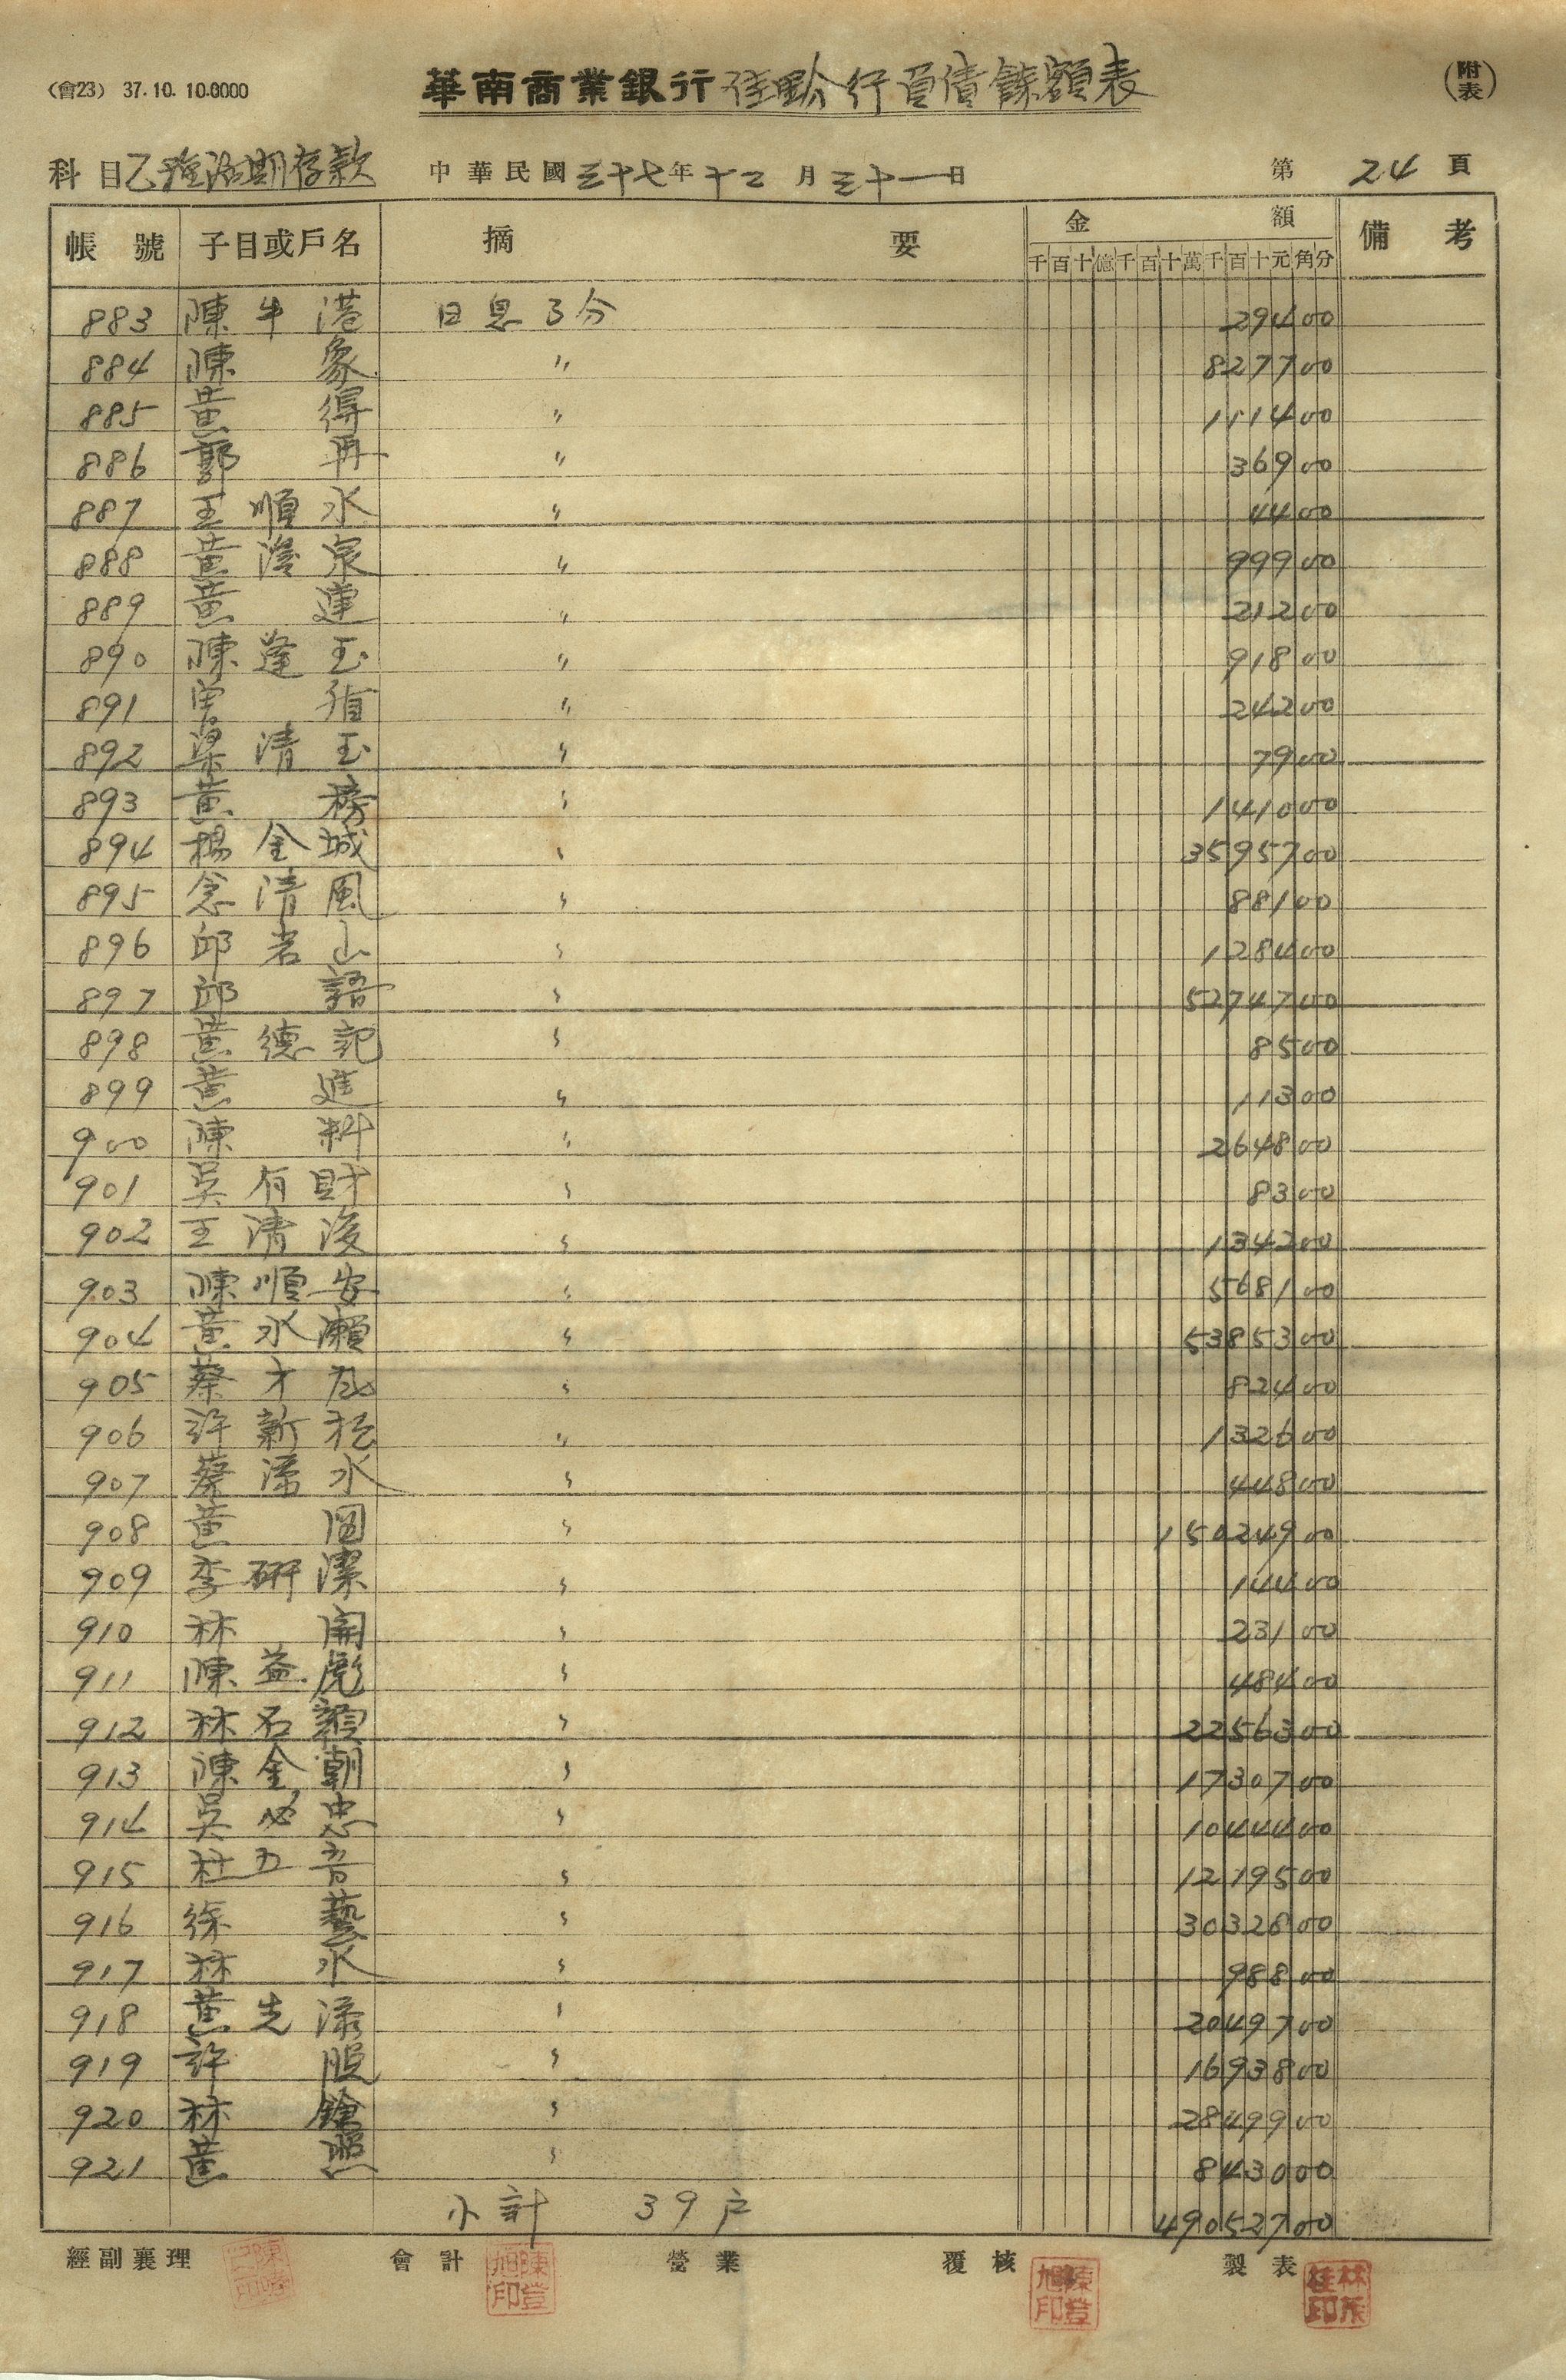 (會23) 37.10.10.0000
華南商業銀行佳里分行負債餘額表
(附表)
科目乙種活期存款 中華民國三十七年十二月三十一日 第24頁
帳號 子目或戶名 摘要 金額 備考
千百十億千百十萬千百十元角分
883 陳牛港 日息3分 29400
884 陳象 〃 827700
885 黃得 〃 111400
886 郭再 〃 36900
887 王順水 〃 4400
888 黃泉 〃 99900
889 黃連 〃 21200
890 陳逢玉 〃 91800
891 曾 〃 24200
892 梁清玉 〃 7900
893 黃榜 〃 141000
894 楊金城 〃 3595700
895 念清風 〃 88100
896 邱岩山 〃 128400
897 邱語 〃 5274700
898 黃德記 〃 8500
899 黃進 〃 11300
900 陳科 〃 264800
901 吳有財 〃 8300
902 王清俊 〃 134200
903 陳順安 〃 568100
904 黃水瀨 〃 5385300
905 蔡才 〃 82400
906 許新 〃 132600
907 蔡水 〃 44800
908 黃 〃 15024900
909 李研潔 〃 14400
910 林開 〃 23100
911 陳益彪 〃 48400
912 林石 〃 2256300
913 陳金朝 〃 1730700
914 吳必忠 〃 1044400
915 杜五音 〃 1219500
916 徐藝 〃 3032800
917 林水 〃 98800
918 黃先添 〃 2049700
919 許 〃 1693800
920 林鎗 〃 2849900
921 黃照 〃 843000
小計 39戶 49052700
經副襄理 會計 營業 覆核 製表
陳登旭印 陳登旭印 林茂桂印